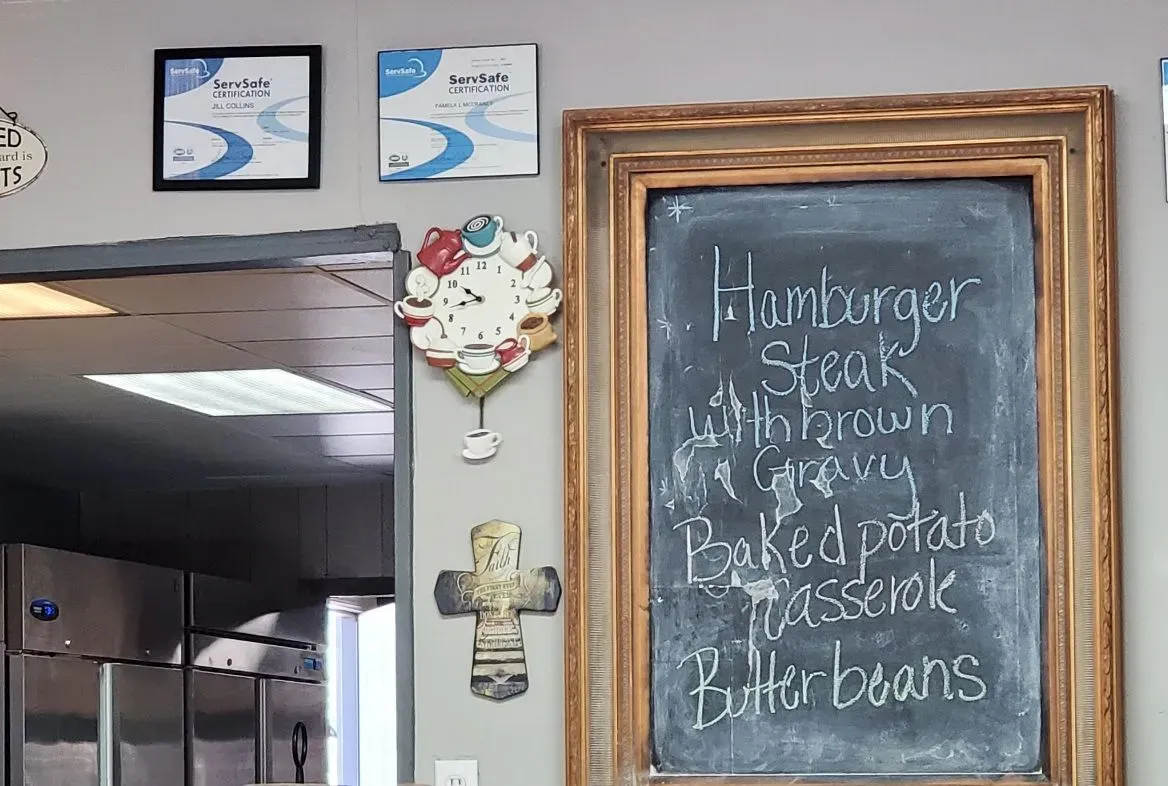 ED
ard is
TS
ServSafe
ServSafe®
CERTIFICATION
JILL COLLINS
ServSafe
ServSafe®
CERTIFICATION
PAMELA L MCCRANEY
11 12 1
10 2
9 3
8 4
7 6 5
Faith
Hamburger
Steak
with brown
Gravy
Baked potato
Casserole
Butter beans